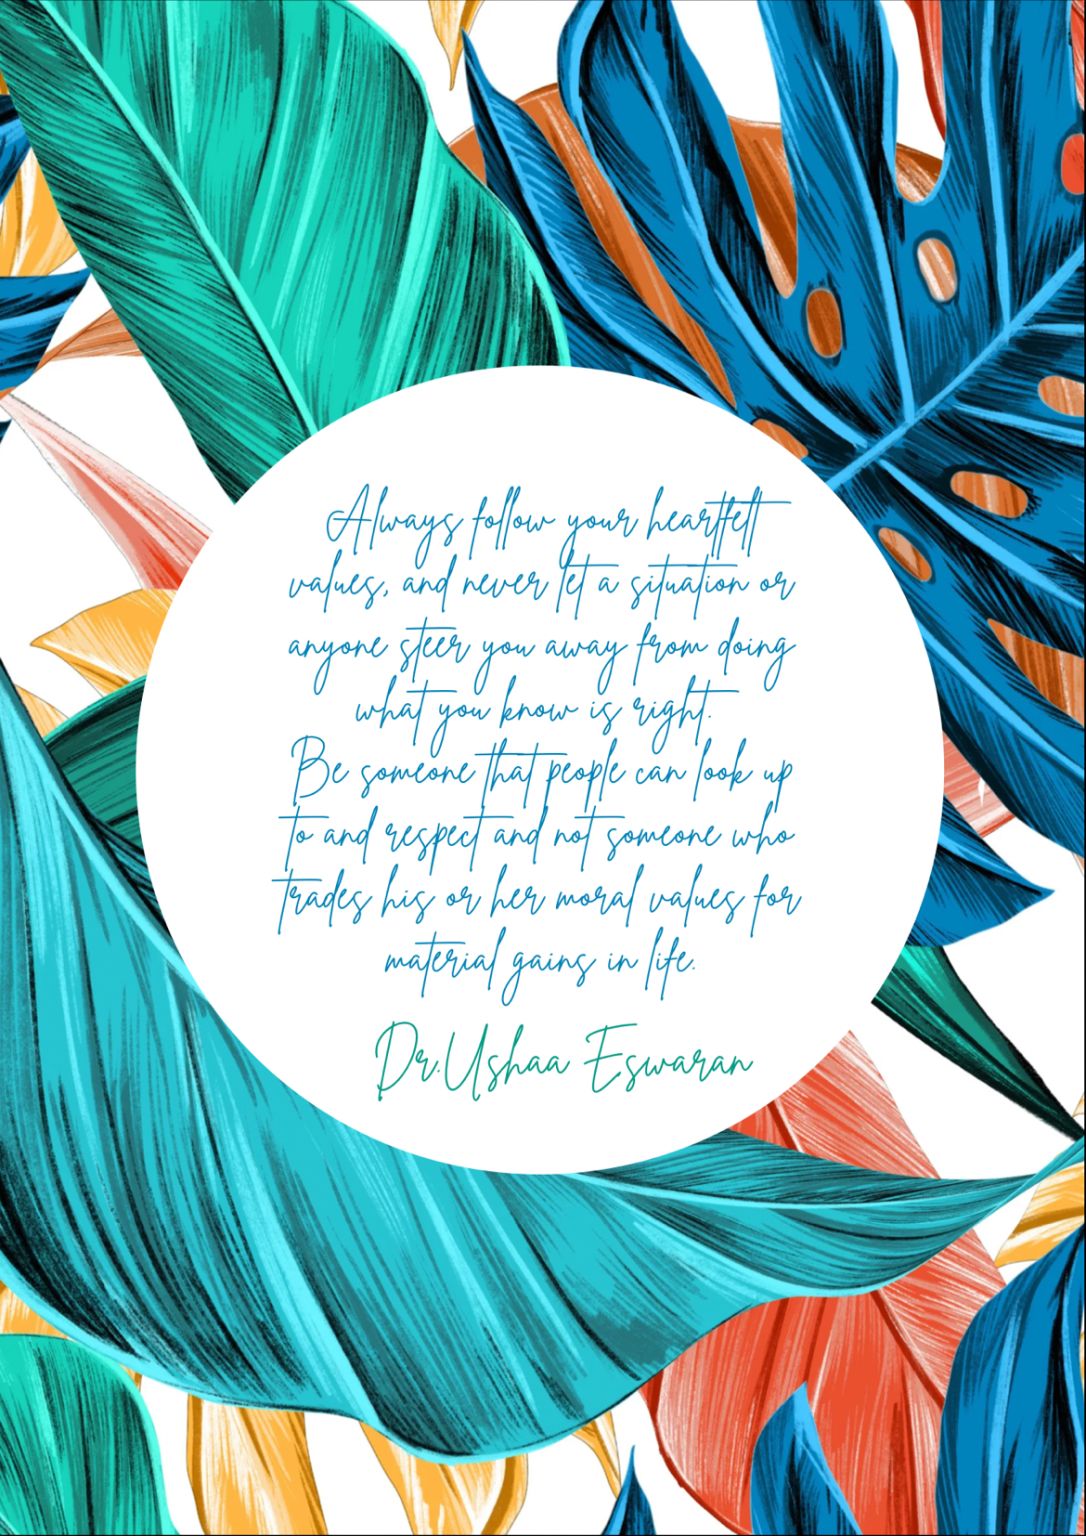 Always follow your heartfelt
values, and never let a situation or
anyone steer you away from doing
what you know is right.
Be someone that people can look up
to and respect and not someone who
trades his or her moral values for
material gains in life.
Dr.Ushaa Eswaran